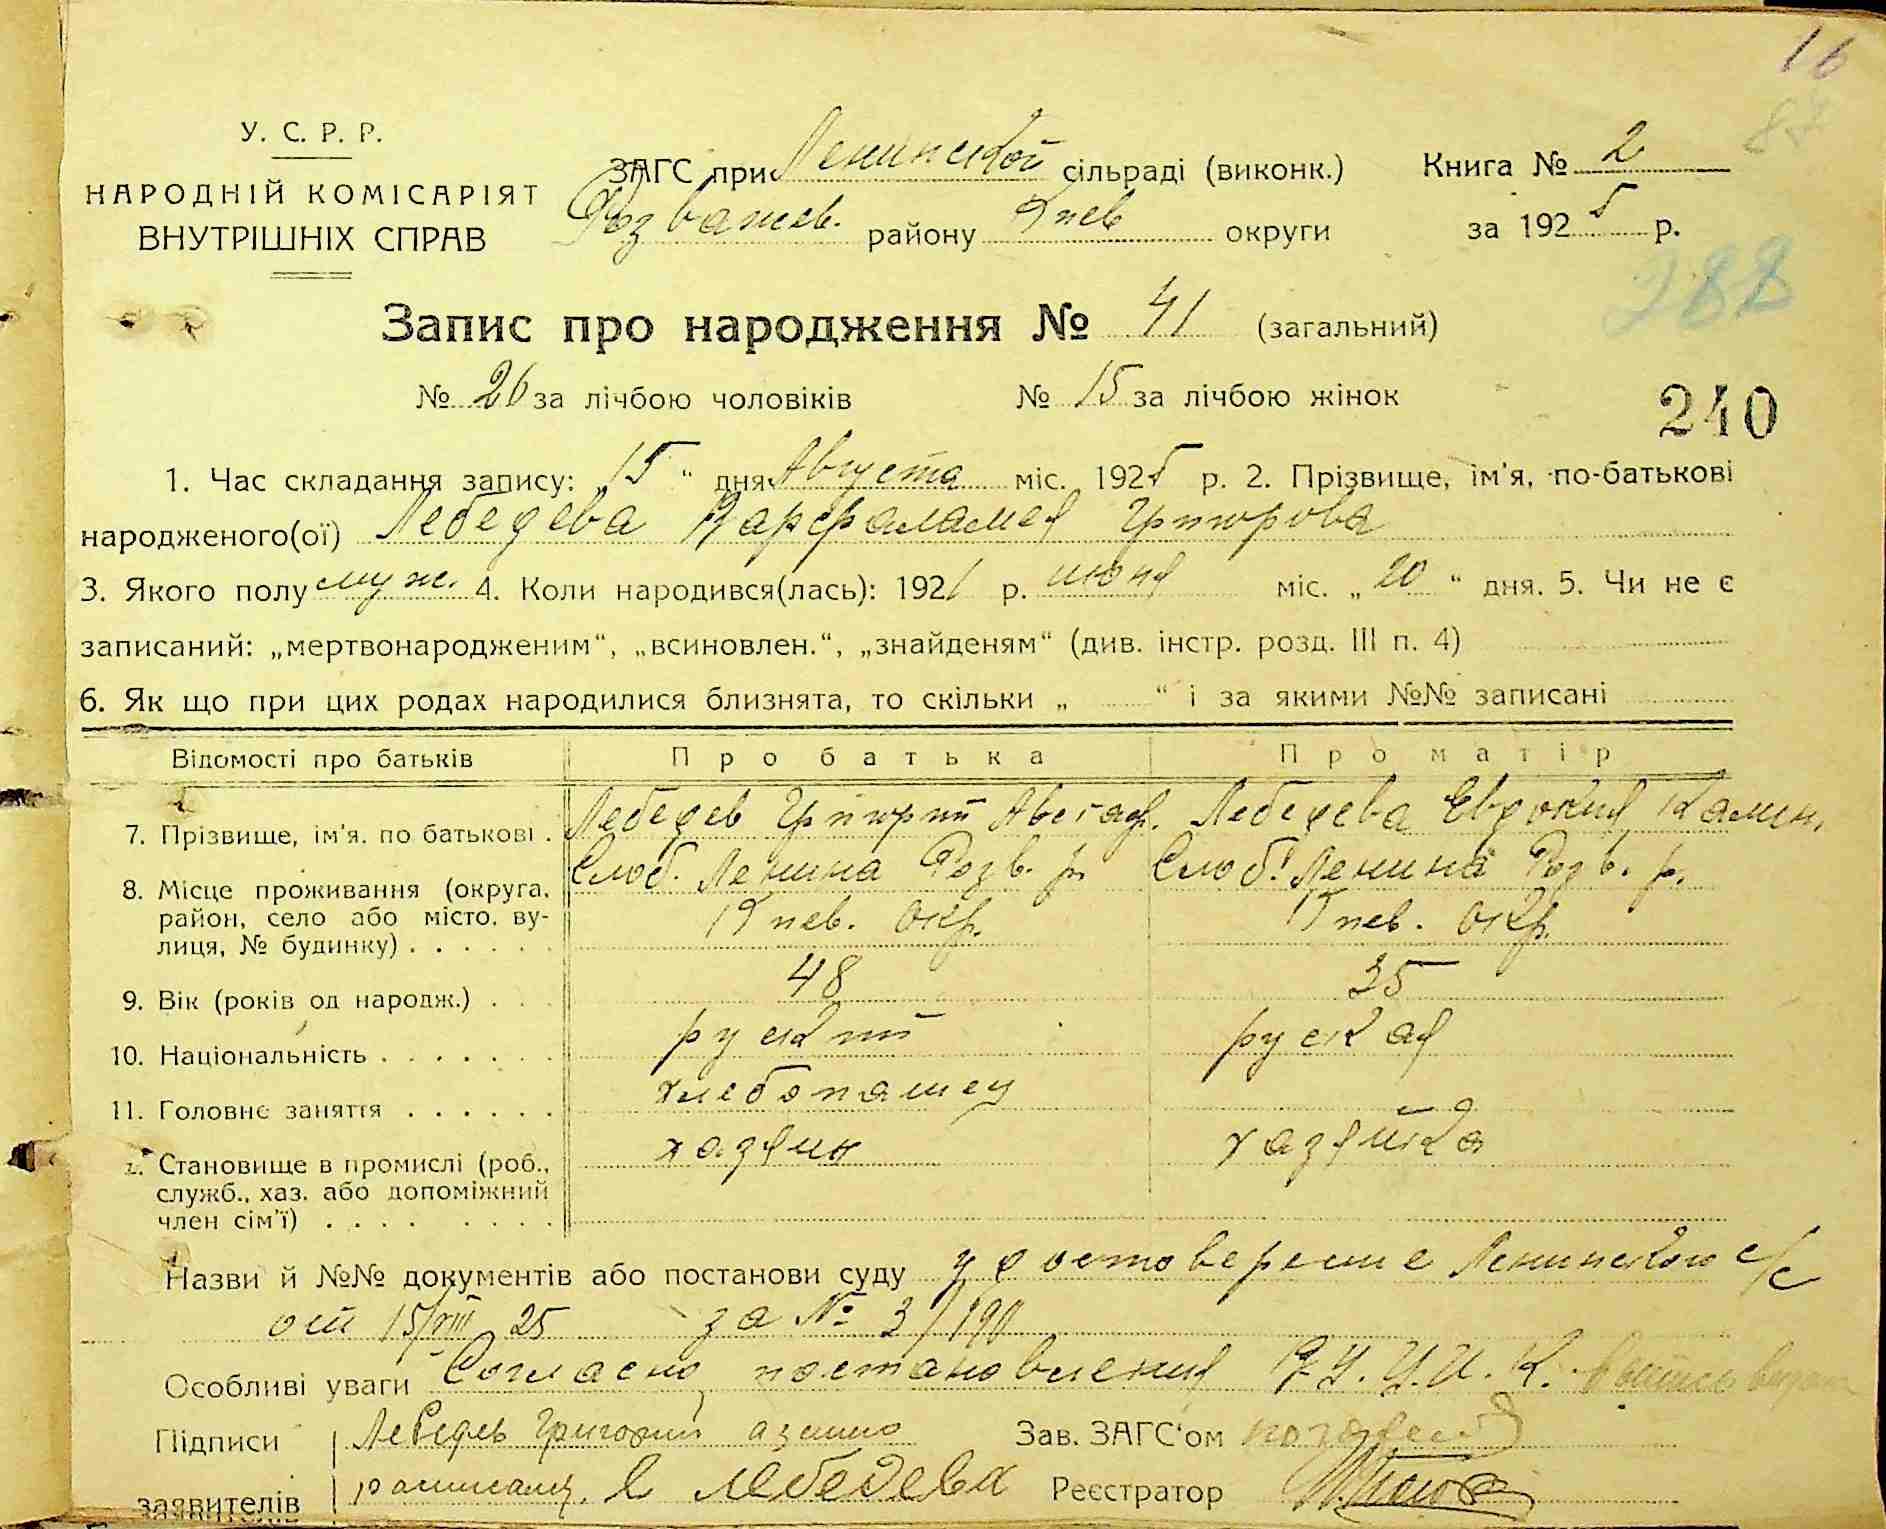 16
87
У. С. Р. Р.
НАРОДНІЙ КОМІСАРІЯТ
ВНУТРІШНІХ СПРАВ
ЗАГС при Ленинской сільраді (виконк.)
Розважев. району Киев округи
Книга № 2
за 1925 р.
288
Запис про народження № 41 (загальний)
№ 26 за лічбою чоловіків № 15 за лічбою жінок
240
1. Час складання запису: 15 " дня Августа міс. 1925 р. 2. Прізвище, ім'я, по-батькові
народженого(ої) Лебедева Варфаламея Григорова
3. Якого полу муж. 4. Коли народився(лась): 1921 р. июня міс. „ 20 " дня. 5. Чи не є
записаний: „мертвонародженим", „всиновлен.", „знайденям" (див. інстр. розд. III п. 4)
6. Як що при цих родах народилися близнята, то скільки „ " і за якими №№ записані
Відомості про батьків Про батька Про матір
7. Прізвище, ім'я. по батькові . Лебедев Григорий Лебедева Евдокия Камен.
8. Місце проживання (округа, район, село або місто, вулиця, № будинку) . . . . . .
Слоб. Ленина Розв. р. Слоб. Ленина Розв. р.
Киев. окр. Киев. окр.
9. Вік (років од народж.) . . . 48 35
10. Національність . . . . . . . руский руская
11. Головне заняття . . . . . . хлебопашец
Становище в промислі (роб., служб., хаз. або допоміжний член сім'ї) . . . . . . . . .
хазяин хазяйка
Назви й №№ документів або постанови суду удостоверение Ленинского с/с
от 15/VIII 25 за № 3/190
Особливі уваги Согласно постановления В.У.Ц.И.К.
Підписи Лебедев Григорий Зав. ЗАГС'ом
заявителів Е Лебедева Реєстратор